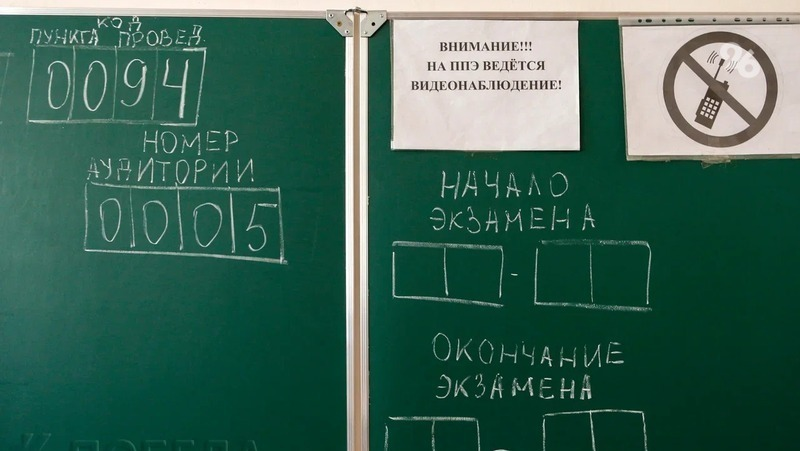 КОД
ПУНКТА ПРОВЕД
0094
НОМЕР
АУДИТОРИИ
0005
ВНИМАНИЕ!!!
НА ППЭ ВЕДЁТСЯ
ВИДЕОНАБЛЮДЕНИЕ!
НАЧАЛО
ЭКЗАМЕНА
-
ОКОНЧАНИЕ
ЭКЗАМЕНА
ПОБЕДА